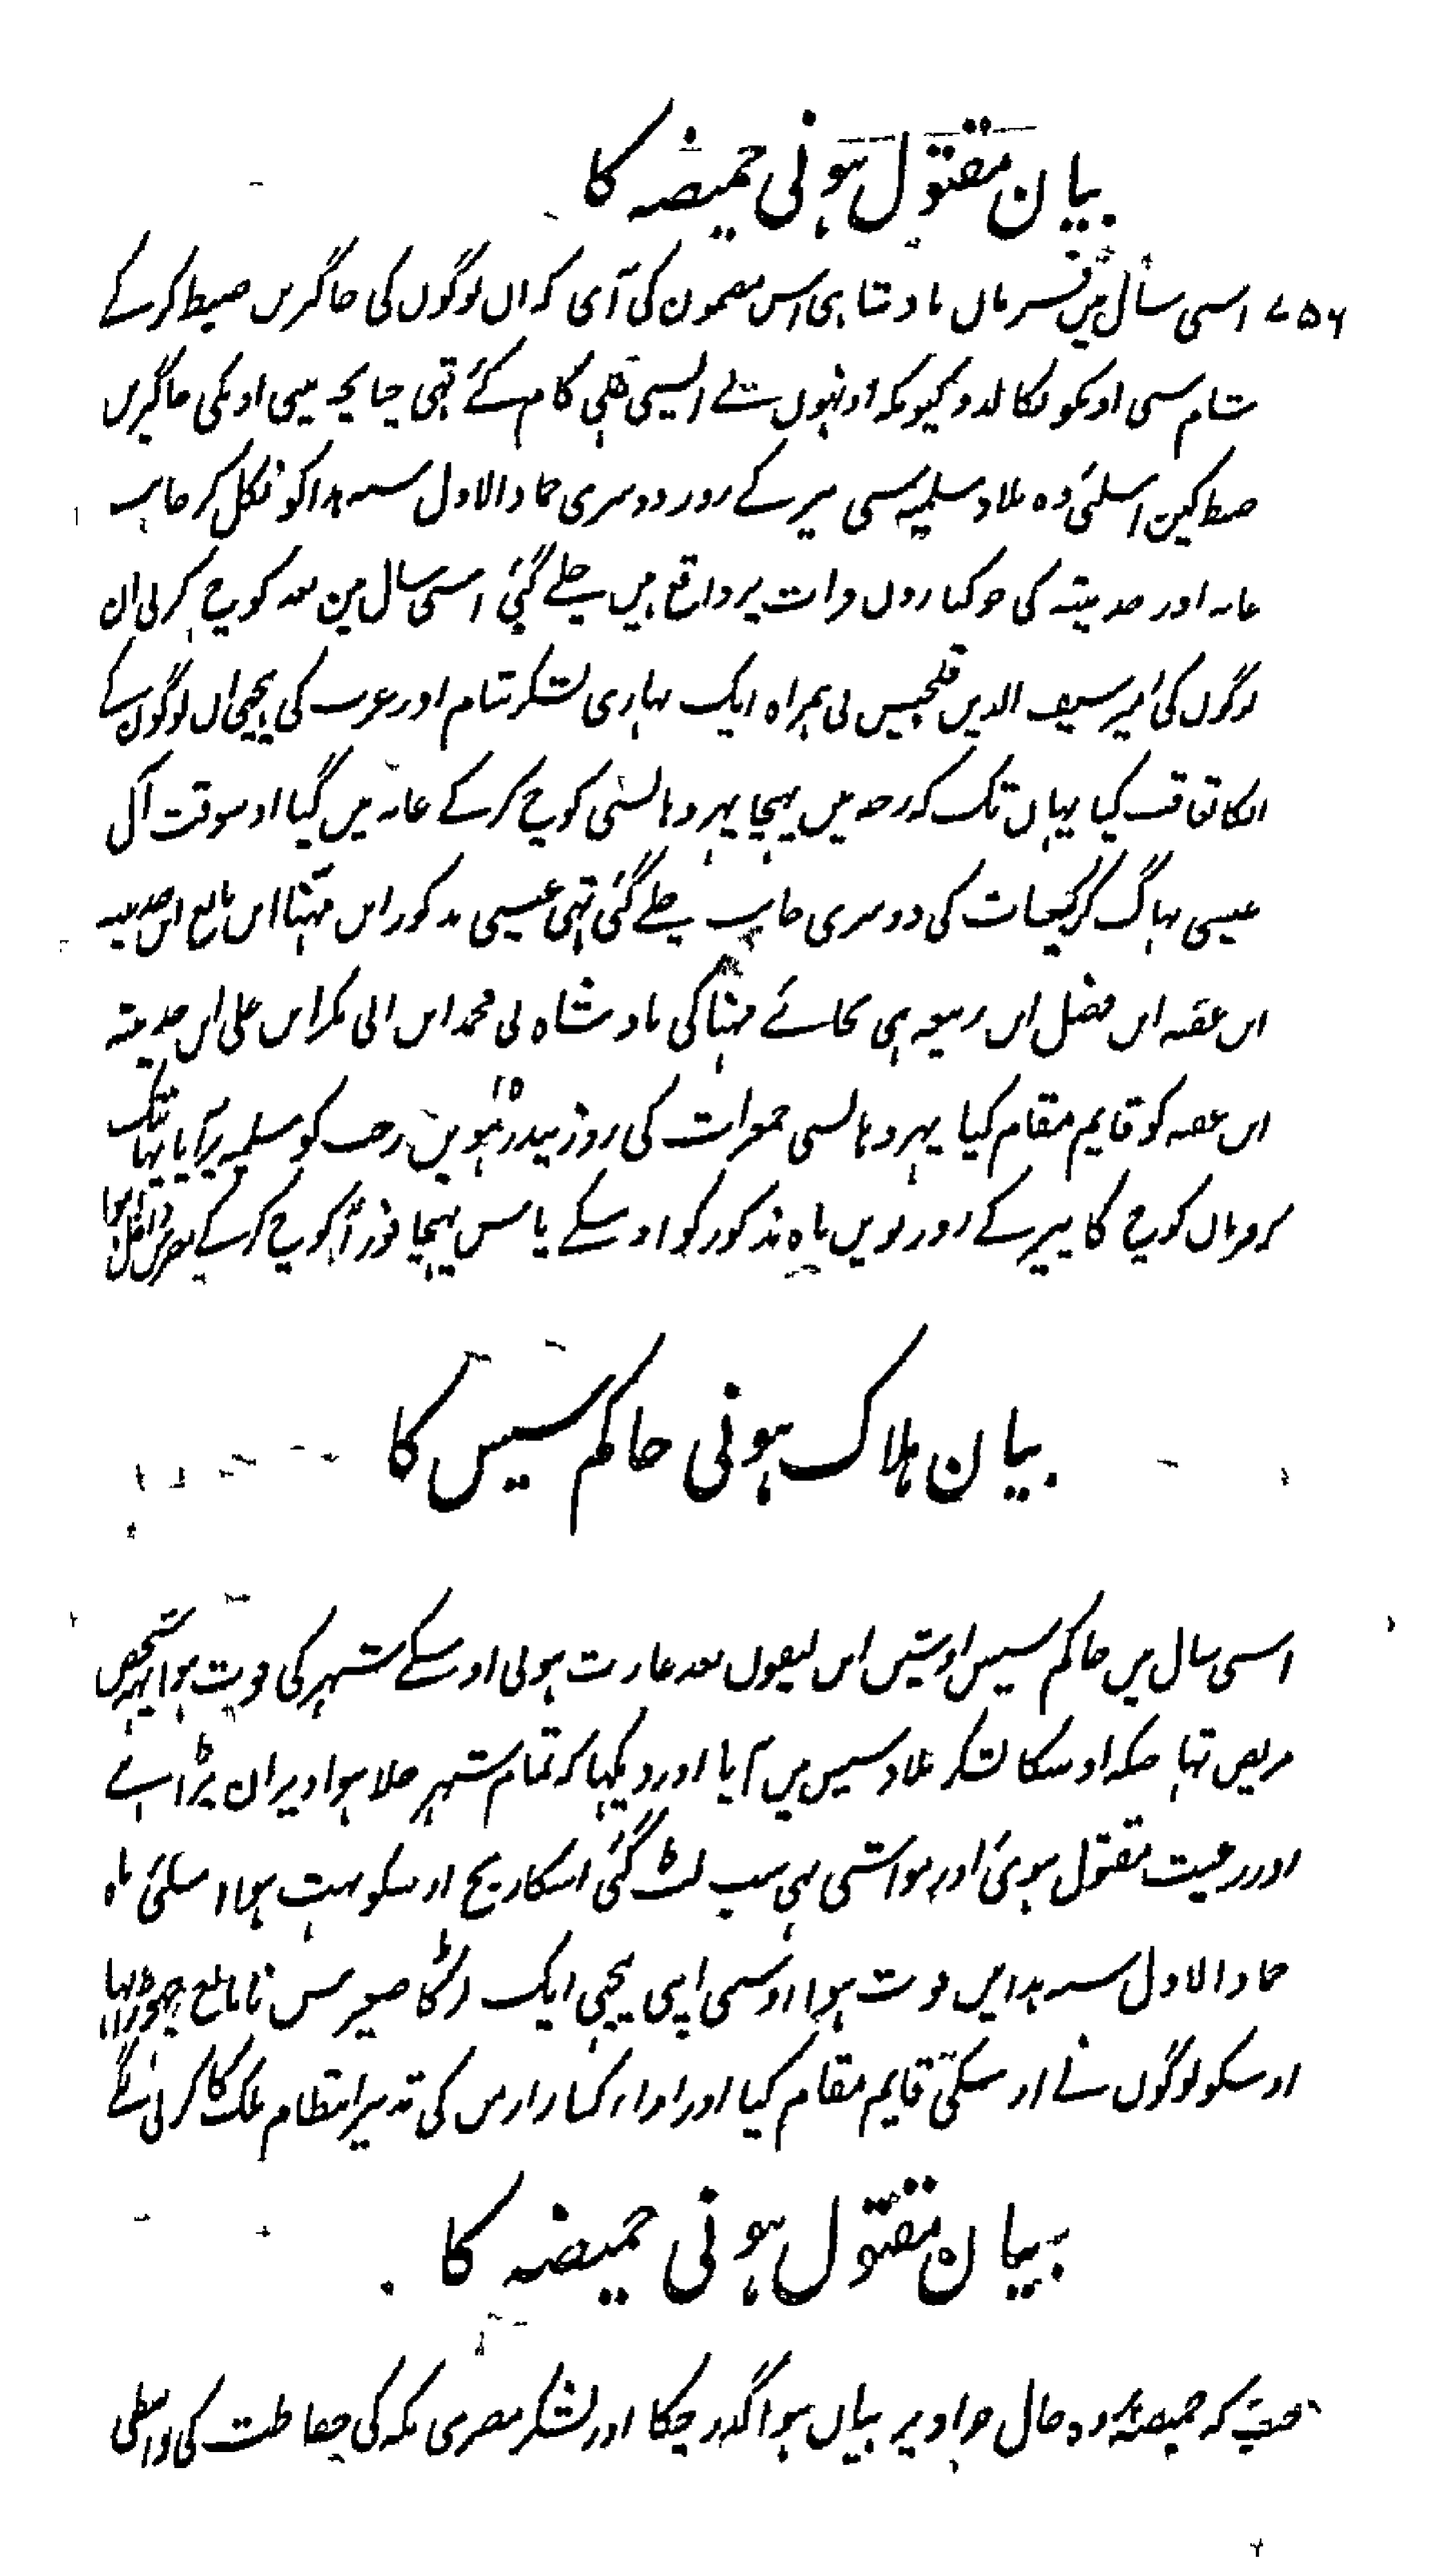 بیان مقتول ہونی حمیضہ کا
۷۵۶ اسی سال میں فرمان بادشاہی اس مضمون کی آی کہ ان لوگوں کی جاگیریں ضبط کرکے
شام سی اونکو نکالدو کیونکہ اونہوں نے ایسی ہی کام کئے تہی چنانچہ اونکی جاگیریں
ضبط کین اسلئی وہ بلاد سلمیہ سی پیر کے روز دوسری جمادالاول سنہ ہذا کو نکل کر جانب
عانہ اور حدیثہ کی جو کنارون فرات پر واقع ہیں چلے گئی اسی سال مین بعد کوچ کرنی ان
لوگوں کی امیر سیف الدین قلجیس نی ہمراہ ایک بہاری لشکر شام اور عرب کی پیچہی ان لوگون کے
انکا تعاقب کیا یہاں تک کہ رحبہ میں پہنچا پہر وہانسی کوچ کرکے عانہ میں گیا اوسوقت آل
عیسی بہاگ کر کبیجات کی دوسری جانب چلے گئی تہی عیسی مذکور ابن مہنا ابن مانع ابن حدیثہ
ابن عقبہ ابن فضل ابن ربیعہ ہی بجائے مہنا کی بادشاہ نی محمد ابن ابی بکر ابن علی ابن حدیثہ
ابن عقبہ کو قایم مقام کیا پہر وہانسی جمعرات کی روز پندرہوین ۱۵ رجب کو سلمیہ پر آیا یہانتک
کہ فرمان کوچ کا پیر کے روز نویں ماہ مذکور کو اوسکے پاس پہنچا فوراً کوچ کرکے مصر میں داخل ہوا
بیان ہلاک ہونی حاکم سیس کا
اسی سال میں حاکم سیس اوشین ابن لیفون بعد غارت ہونی اوسکے شہر کی فوت ہوا یہہ شخص
مریض تہا جبکہ اوسکا لشکر بلاد سیس میں آیا اور دیکہا کہ تمام شہر جلا ہوا ویران پڑا ہے
اور رعیت مقتول ہوئی اور مواشی بہی سب لٹ گئی اسکا رنج اوسکو بہت ہوا اسلئی ماہ
جمادالاول سنہ ہذا میں فوت ہوا اوسی اپنی پیچہی ایک لڑکا صغیر سن نابالغ چہوڑا تہا
اوسکو لوگوں نے اوسکی قایم مقام کیا اور امراء کبار ارمن کی تدبیر انتظام ملک کا کرنی لگے
بیان مقتول ہونی حمیضہ کا
جب کہ حمیضہ کا وہ حال جو اوپر بیان ہوا گذر چکا اور لشکر مصری مکہ کی حفاظت کی واسطی